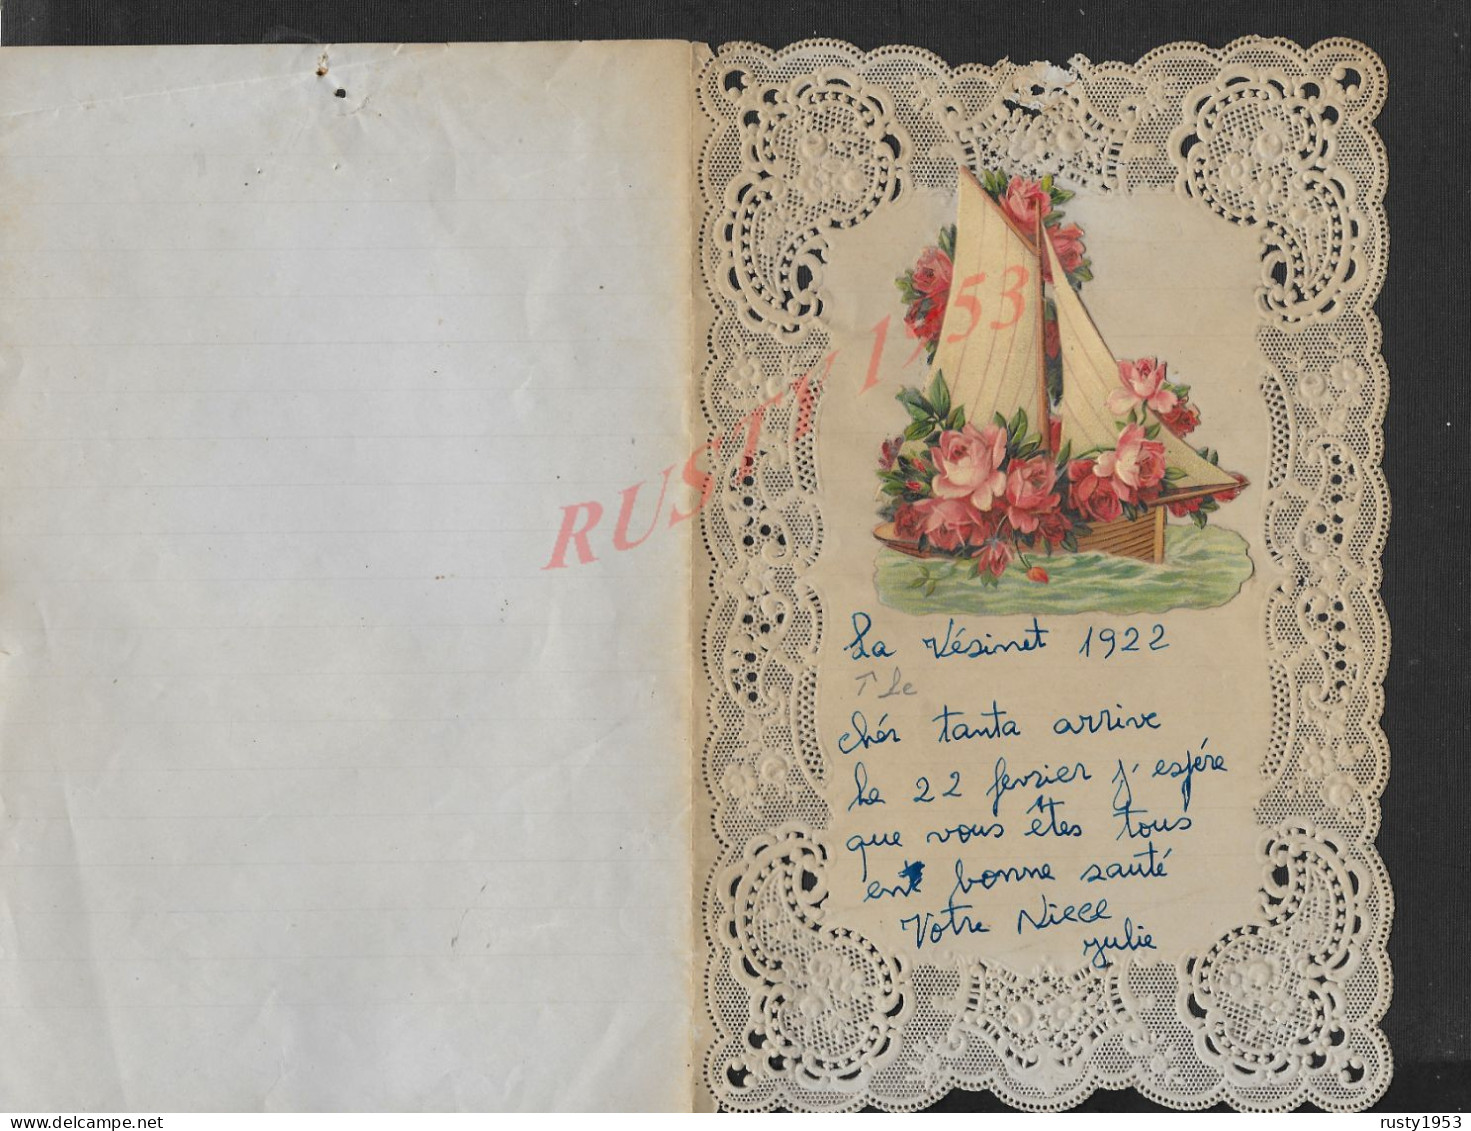 RUSTY 1953
La Vésinet 1922
↑ Le
chér tanta arrive
le 22 fevrier j'espére
que vous êtes tous
ent bonne santé
Votre Niece
julie
© delcampe.net
rusty1953